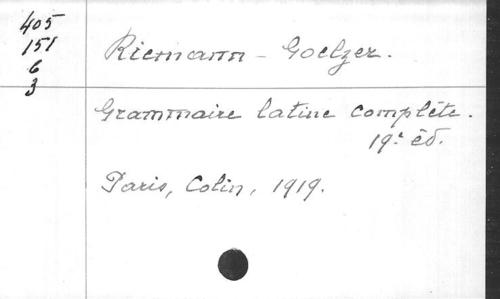 405
151
6
3
Riemann - Goelzer.
Grammaire latine complète.
19e éd.
Paris, Colin, 1919.